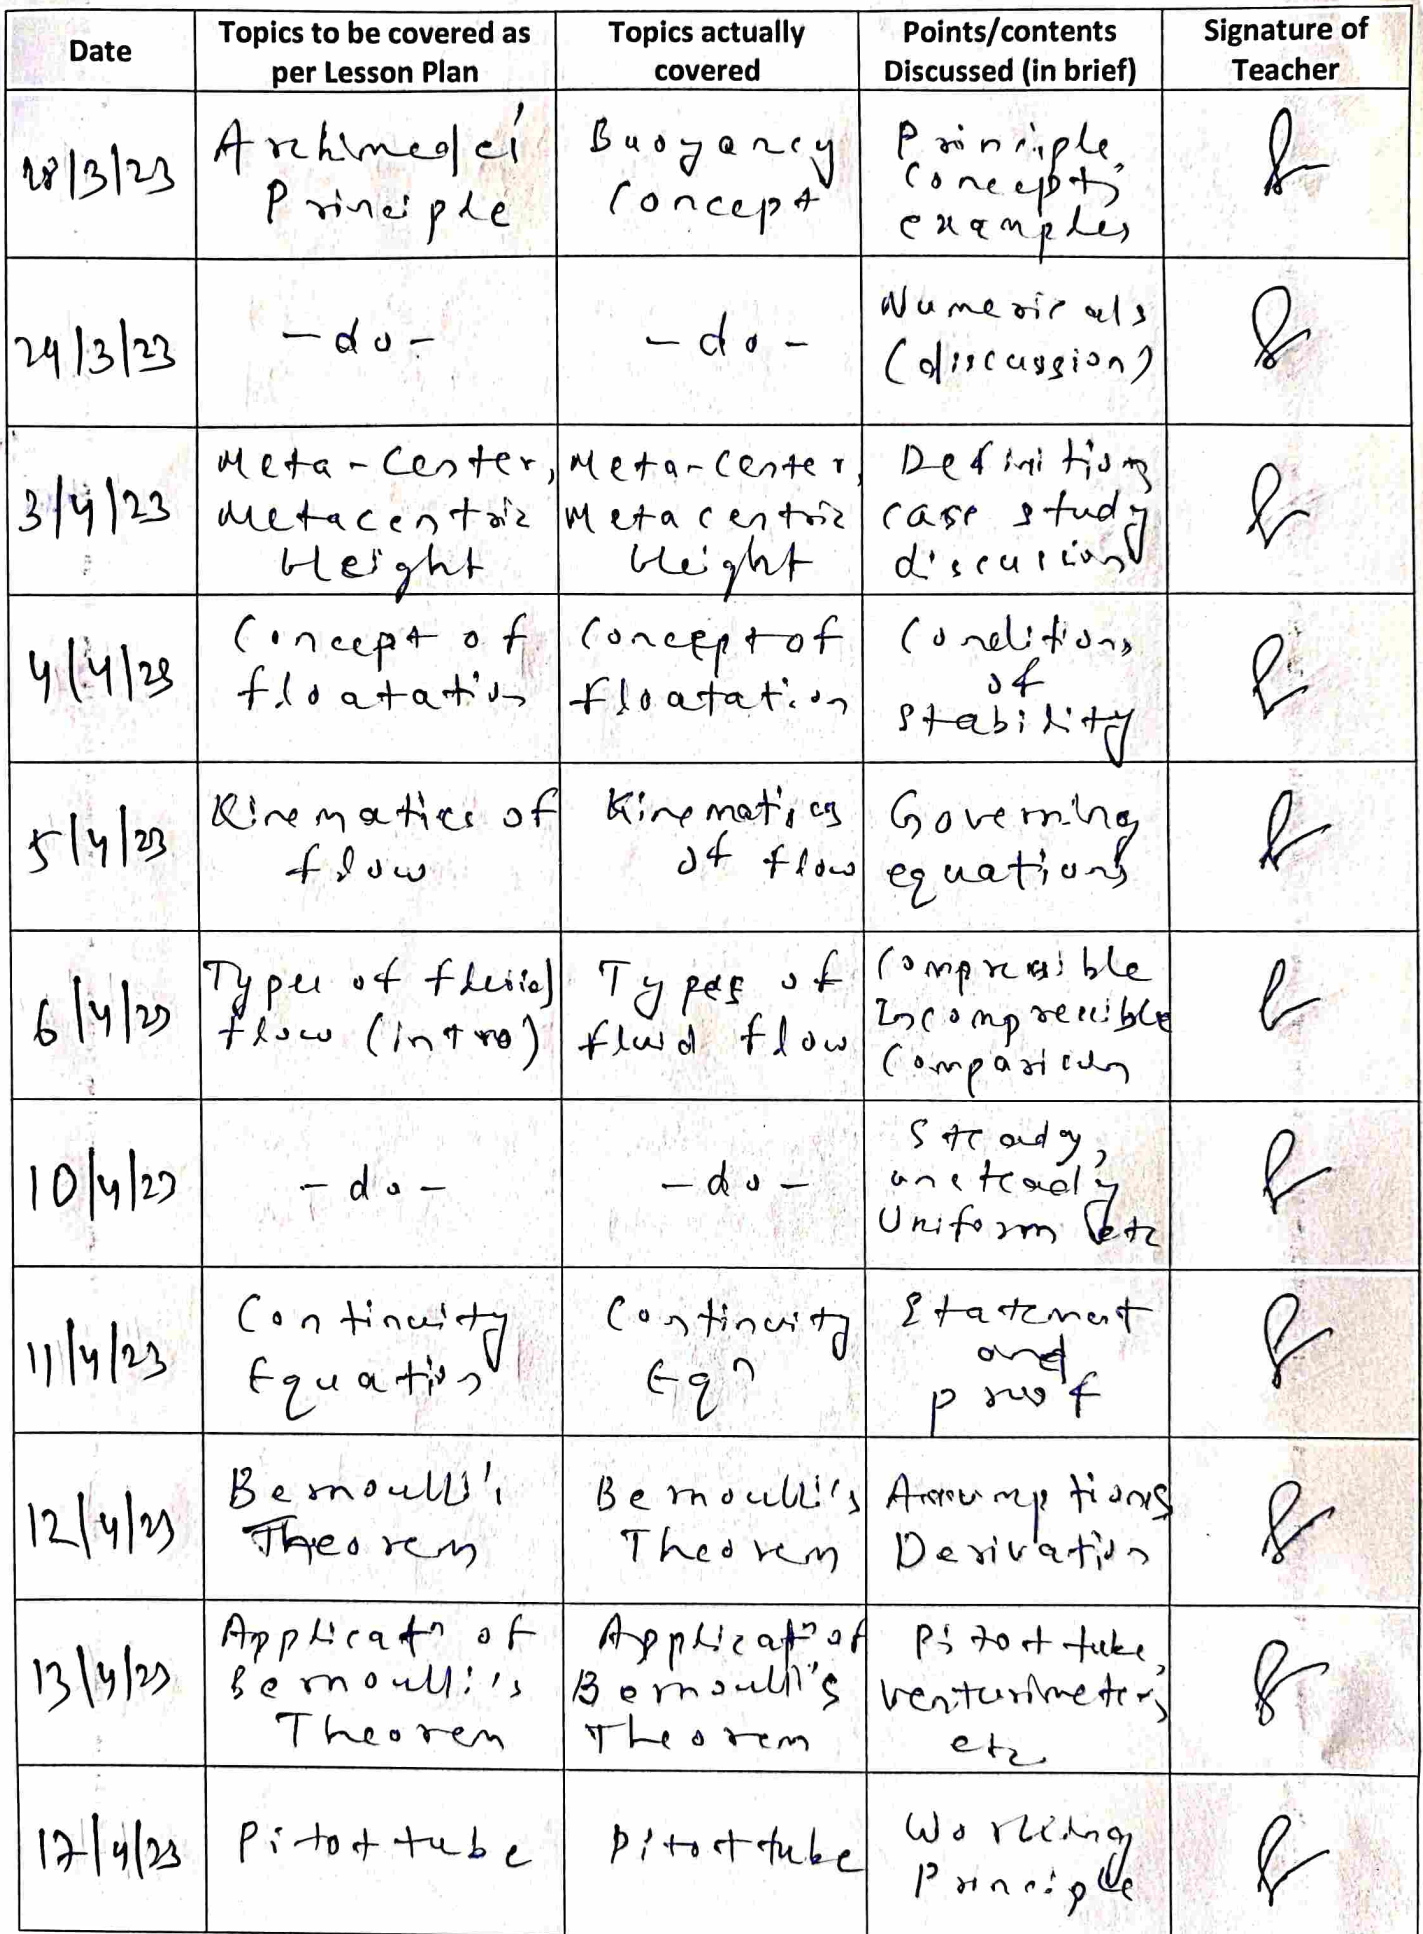 Date
Topics to be covered as
per Lesson Plan
Topics actually
covered
Points/contents
Discussed (in brief)
Signature of
Teacher
28/3/23
Archimedes'
Principle
Buoyancy
Concept
Principle,
Concepts,
examples
29/3/23
-do-
-do-
Numericals
(discussion)
3/4/23
Meta-Center,
Metacentric
Height
Meta-Center,
Metacentric
Height
Definition
case study
discussion
4/4/23
Concept of
floatation
Concept of
floatation
Conditions
of
stability
5/4/23
Kinematics of
flow
Kinematics
of flow
Governing
equations
6/4/23
Types of fluid
flow (intro)
Types of
fluid flow
Compressible
Incompressible
Comparison
10/4/23
-do-
-do-
Steady,
unsteady
Uniform etc
11/4/23
Continuity
Equation
Continuity
Eqn
Statement
and
proof
12/4/23
Bernoulli's
Theorem
Bernoulli's
Theorem
Assumptions
Derivation
13/4/23
Applicatn of
Bernoulli's
Theorem
Applicatn of
Bernoulli's
Theorem
Pitot tube,
venturimeters
etc
17/4/23
Pitot tube
Pitot tube
Working
Principle